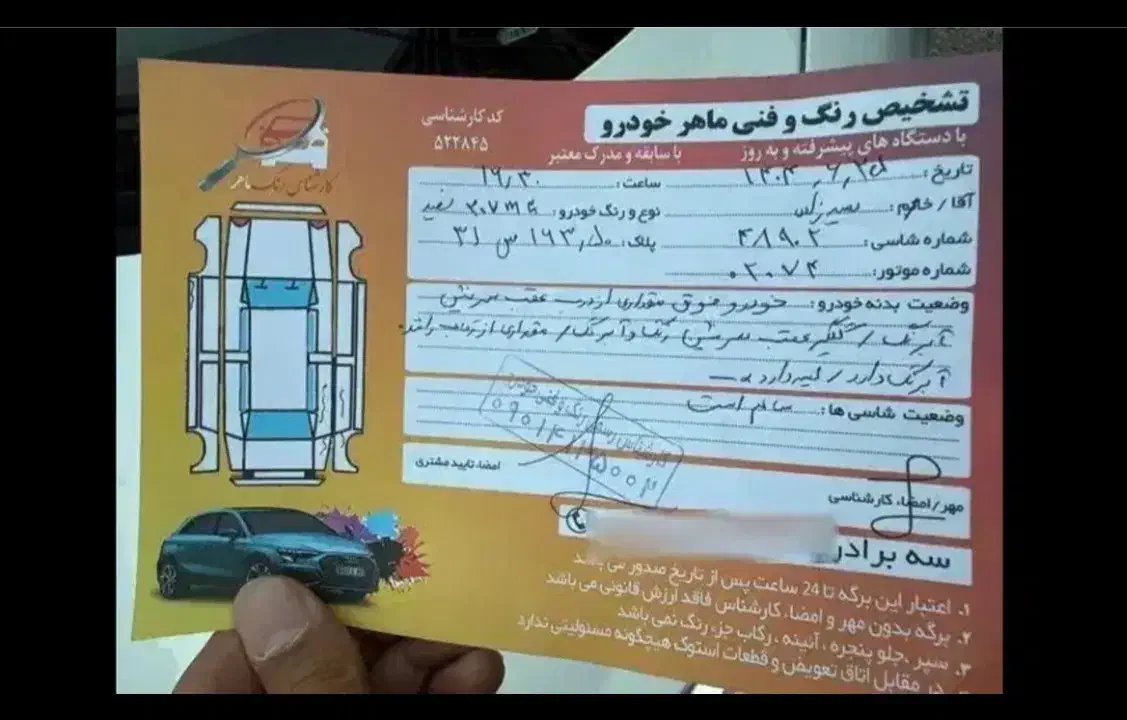 تشخیص رنگ و فنی ماهر خودرو
با دستگاه های پیشرفته و به روز
با سابقه و مدرک معتبر
کد کارشناسی
۵۲۲۸۴۵
کارشناسی رنگ ماهر
تاریخ: ۱۴۰۴,۶,۲۵ ساعت: ۱۶,۳۰
آقا / خانم: نوع و رنگ خودرو: سفید
شماره شاسی: ۴۸۹۰۲ پلاک: ۱۶۳
شماره موتور: ۰۲۰۷۴
وضعیت بدنه خودرو: خودرو فوق مقداری از درب عقب سرنشین
آبرنگ / گلگیر عقب سرنشین رنگ و آبرنگ / مقداری از
آبرنگ دارد / لیسه دارد
وضعیت شاسی ها: سالم است
امضا، تایید مشتری
مهر / امضا، کارشناسی
سه برادر
۱. اعتبار این برگه تا 24 ساعت پس از تاریخ صدور می باشد
۲. برگه بدون مهر و امضا، کارشناس فاقد ارزش قانونی می باشد
۳. سپر ,جلو پنجره ، آئینه ، رکاب جزء رنگ نمی باشد
در مقابل اتاق تعویض و قطعات استوک هیچگونه مسئولیتی ندارد